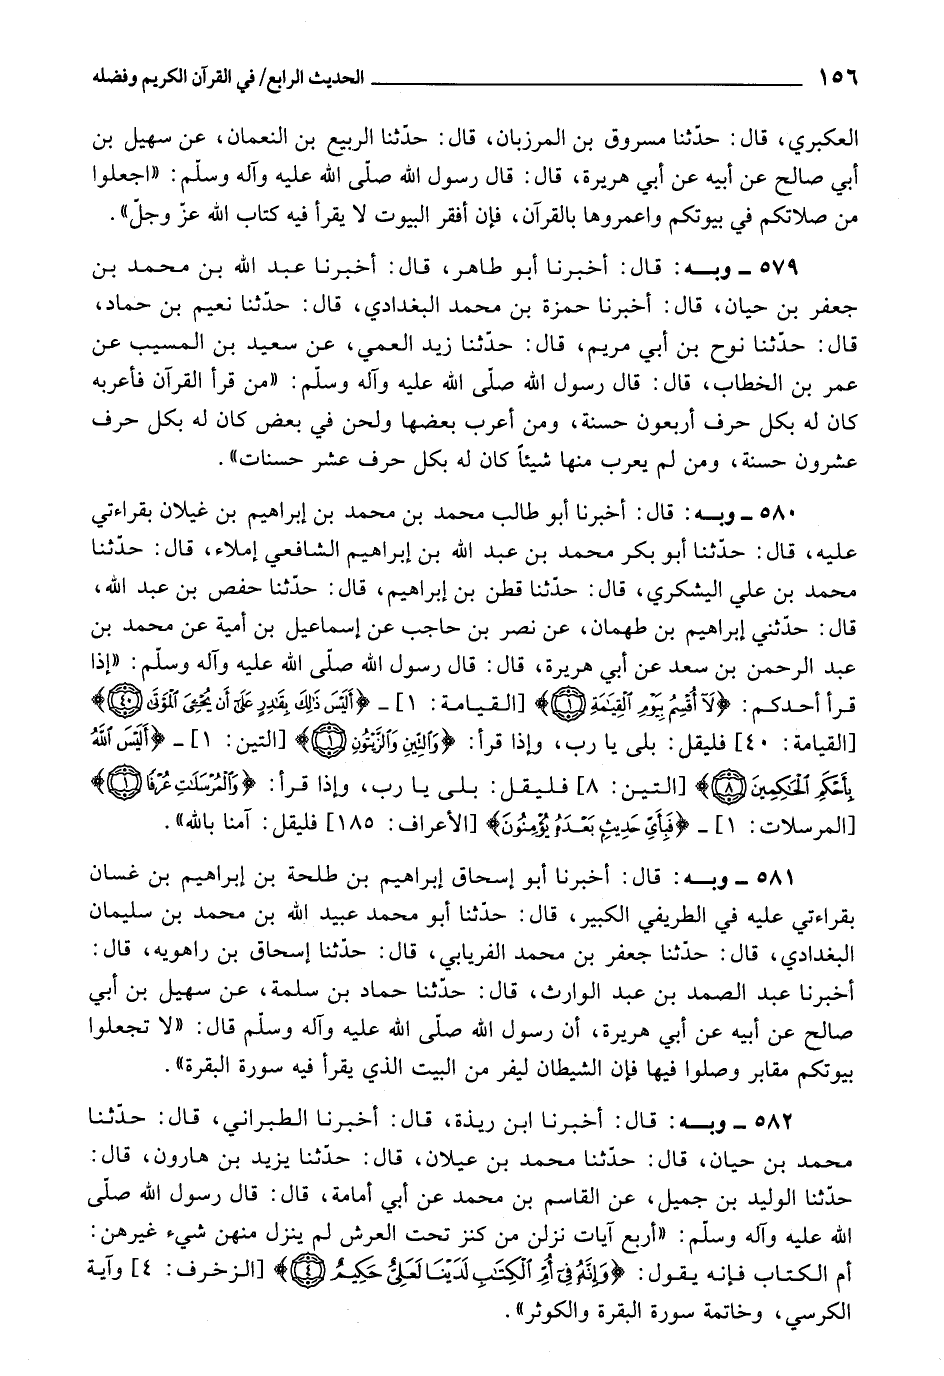 ١٥٦ ــــــــــــــــــ الحديث الرابع/ في القرآن الكريم وفضله
العكبري، قال: حدّثنا مسروق بن المرزبان، قال: حدّثنا الربيع بن النعمان، عن سهيل بن
أبي صالح عن أبيه عن أبي هريرة، قال: قال رسول الله صلّى الله عليه وآله وسلّم: «اجعلوا
من صلاتكم في بيوتكم واعمروها بالقرآن، فإن أفقر البيوت لا يقرأ فيه كتاب الله عزّ وجلّ».
٥٧٩ ـ وبـه: قال: أخبرنا أبو طاهر، قال: أخبرنا عبد الله بن محمد بن
جعفر بن حيان، قال: أخبرنا حمزة بن محمد البغدادي، قال: حدّثنا نعيم بن حماد،
قال: حدّثنا نوح بن أبي مريم، قال: حدّثنا زيد العمي، عن سعيد بن المسيب عن
عمر بن الخطاب، قال: قال رسول الله صلّى الله عليه وآله وسلّم: «من قرأ القرآن فأعربه
كان له بكل حرف أربعون حسنة، ومن أعرب بعضها ولحن في بعض كان له بكل حرف
عشرون حسنة، ومن لم يعرب منها شيئاً كان له بكل حرف عشر حسنات».
٥٨٠ ـ وبـه: قال: أخبرنا أبو طالب محمد بن محمد بن إبراهيم بن غيلان بقراءتي
عليه، قال: حدّثنا أبو بكر محمد بن عبد الله بن إبراهيم الشافعي إملاء، قال: حدّثنا
محمد بن علي اليشكري، قال: حدّثنا قطن بن إبراهيم، قال: حدّثنا حفص بن عبد الله،
قال: حدّثني إبراهيم بن طهمان، عن نصر بن حاجب عن إسماعيل بن أمية عن محمد بن
عبد الرحمن بن سعد عن أبي هريرة، قال: قال رسول الله صلّى الله عليه وآله وسلّم: «إذا
قرأ أحدكم: ﴿لَآ أُقْسِمُ بِيَوْمِ ٱلْقِيَٰمَةِ ۝١﴾ [القيامة: ١] ـ ﴿أَلَيْسَ ذَٰلِكَ بِقَٰدِرٍ عَلَىٰٓ أَن يُحْـِۧىَ ٱلْمَوْتَىٰ ۝٤٠﴾
[القيامة: ٤٠] فليقل: بلى يا رب، وإذا قرأ: ﴿وَٱلتِّينِ وَٱلزَّيْتُونِ ۝١﴾ [التين: ١] ـ ﴿أَلَيْسَ ٱللَّهُ
بِأَحْكَمِ ٱلْحَٰكِمِينَ ۝٨﴾ [التين: ٨] فليقل: بلى يا رب، وإذا قرأ: ﴿وَٱلْمُرْسَلَٰتِ عُرْفًا ۝١﴾
[المرسلات: ١] ـ ﴿فَبِأَيِّ حَدِيثٍۭ بَعْدَهُۥ يُؤْمِنُونَ﴾ [الأعراف: ١٨٥] فليقل: آمنا بالله».
٥٨١ ـ وبـه: قال: أخبرنا أبو إسحاق إبراهيم بن طلحة بن إبراهيم بن غسان
بقراءتي عليه في الطريفي الكبير، قال: حدّثنا أبو محمد عبيد الله بن محمد بن سليمان
البغدادي، قال: حدّثنا جعفر بن محمد الفريابي، قال: حدّثنا إسحاق بن راهويه، قال:
أخبرنا عبد الصمد بن عبد الوارث، قال: حدّثنا حماد بن سلمة، عن سهيل بن أبي
صالح عن أبيه عن أبي هريرة، أن رسول الله صلّى الله عليه وآله وسلّم قال: «لا تجعلوا
بيوتكم مقابر وصلوا فيها فإن الشيطان ليفر من البيت الذي يقرأ فيه سورة البقرة».
٥٨٢ ـ وبـه: قال: أخبرنا ابن ريذة، قال: أخبرنا الطبراني، قال: حدّثنا
محمد بن حيان، قال: حدّثنا محمد بن عيلان، قال: حدّثنا يزيد بن هارون، قال:
حدّثنا الوليد بن جميل، عن القاسم بن محمد عن أبي أمامة، قال: قال رسول الله صلّى
الله عليه وآله وسلّم: «أربع آيات نزلن من كنز تحت العرش لم ينزل منهن شيء غيرهن:
أم الكتاب فإنه يقول: ﴿وَإِنَّهُۥ فِىٓ أُمِّ ٱلْكِتَٰبِ لَدَيْنَا لَعَلِىٌّ حَكِيمٌ ۝٤﴾ [الزخرف: ٤] وآية
الكرسي، وخاتمة سورة البقرة والكوثر».